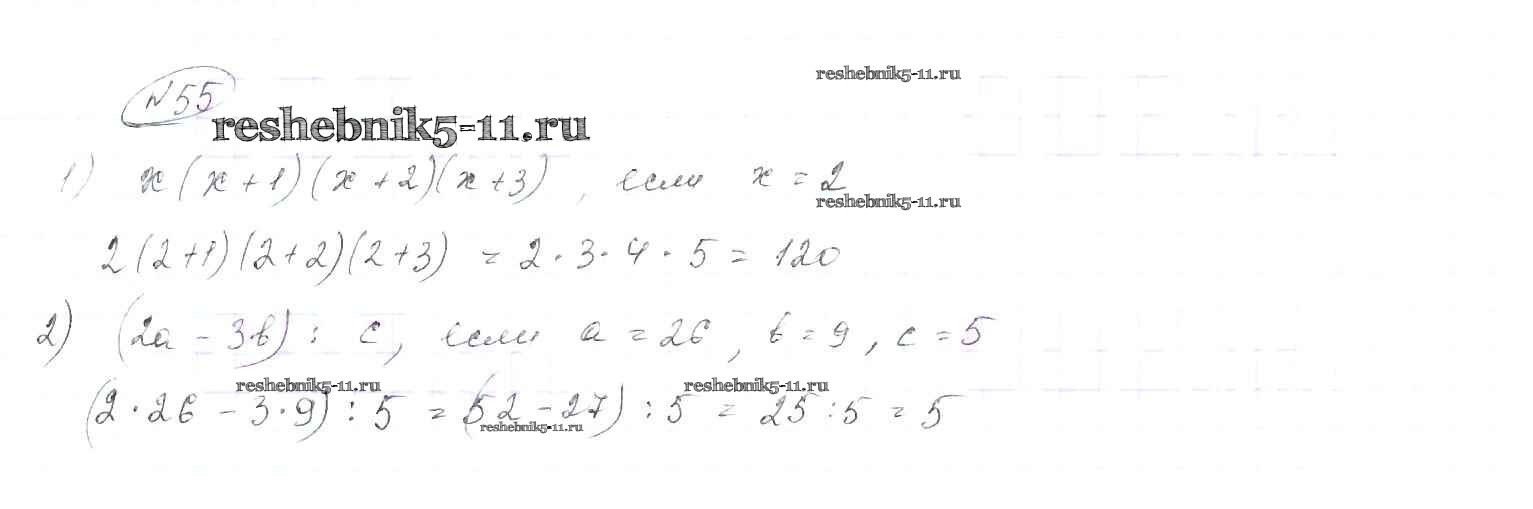 reshebnik5-11.ru
№55
reshebnik5-11.ru
1) x(x+1)(x+2)(x+3), если x=2
reshebnik5-11.ru
2(2+1)(2+2)(2+3) = 2·3·4·5 = 120
2) (2a - 3b) : c, если a = 26, b = 9, c = 5
reshebnik5-11.ru reshebnik5-11.ru
(2·26 - 3·9) : 5 = (52 - 27) : 5 = 25 : 5 = 5
reshebnik5-11.ru